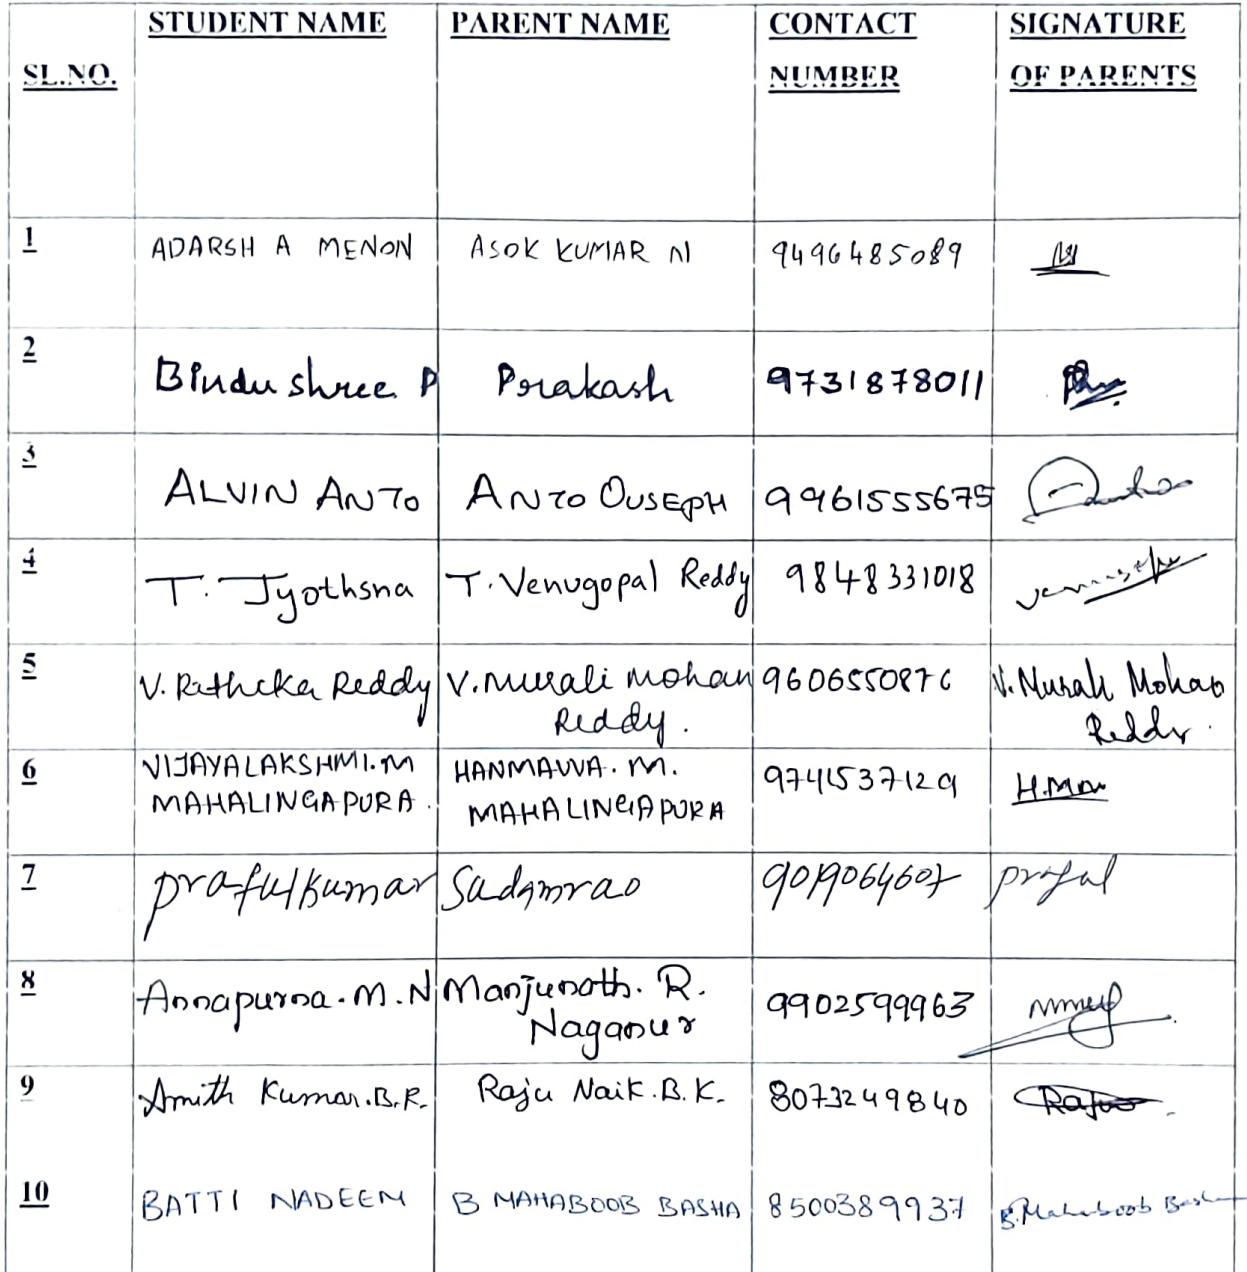 SL.NO. STUDENT NAME PARENT NAME CONTACT NUMBER SIGNATURE OF PARENTS
1 ADARSH A MENON ASOK KUMAR N 9496485089
2 Bindushree P Prakash 9731878011
3 ALVIN ANTO ANTO OUSEPH 9961555675
4 T. Jyothsna T. Venugopal Reddy 9848331018
5 V. Rathcka Reddy V. Murali Mohan 960655087 V. Murali Mohan
Reddy. Reddy.
6 VIJAYALAKSHMI.M HANMAVVA. M. 9741537129 H.Man
MAHALINGAPURA. MAHALINGAPURA
7 prafulkumar Sadamrao 9019064607 praful
8 Annapurna. M. N Manjunath. R. 9902599963
Naganur
9 Amith Kumar.B.R. Raju Naik.B.K. 8073249840 Raju
10 BATTI NADEEM B MAHABOOB BASHA 8500389937 B.Mahaboob Basha